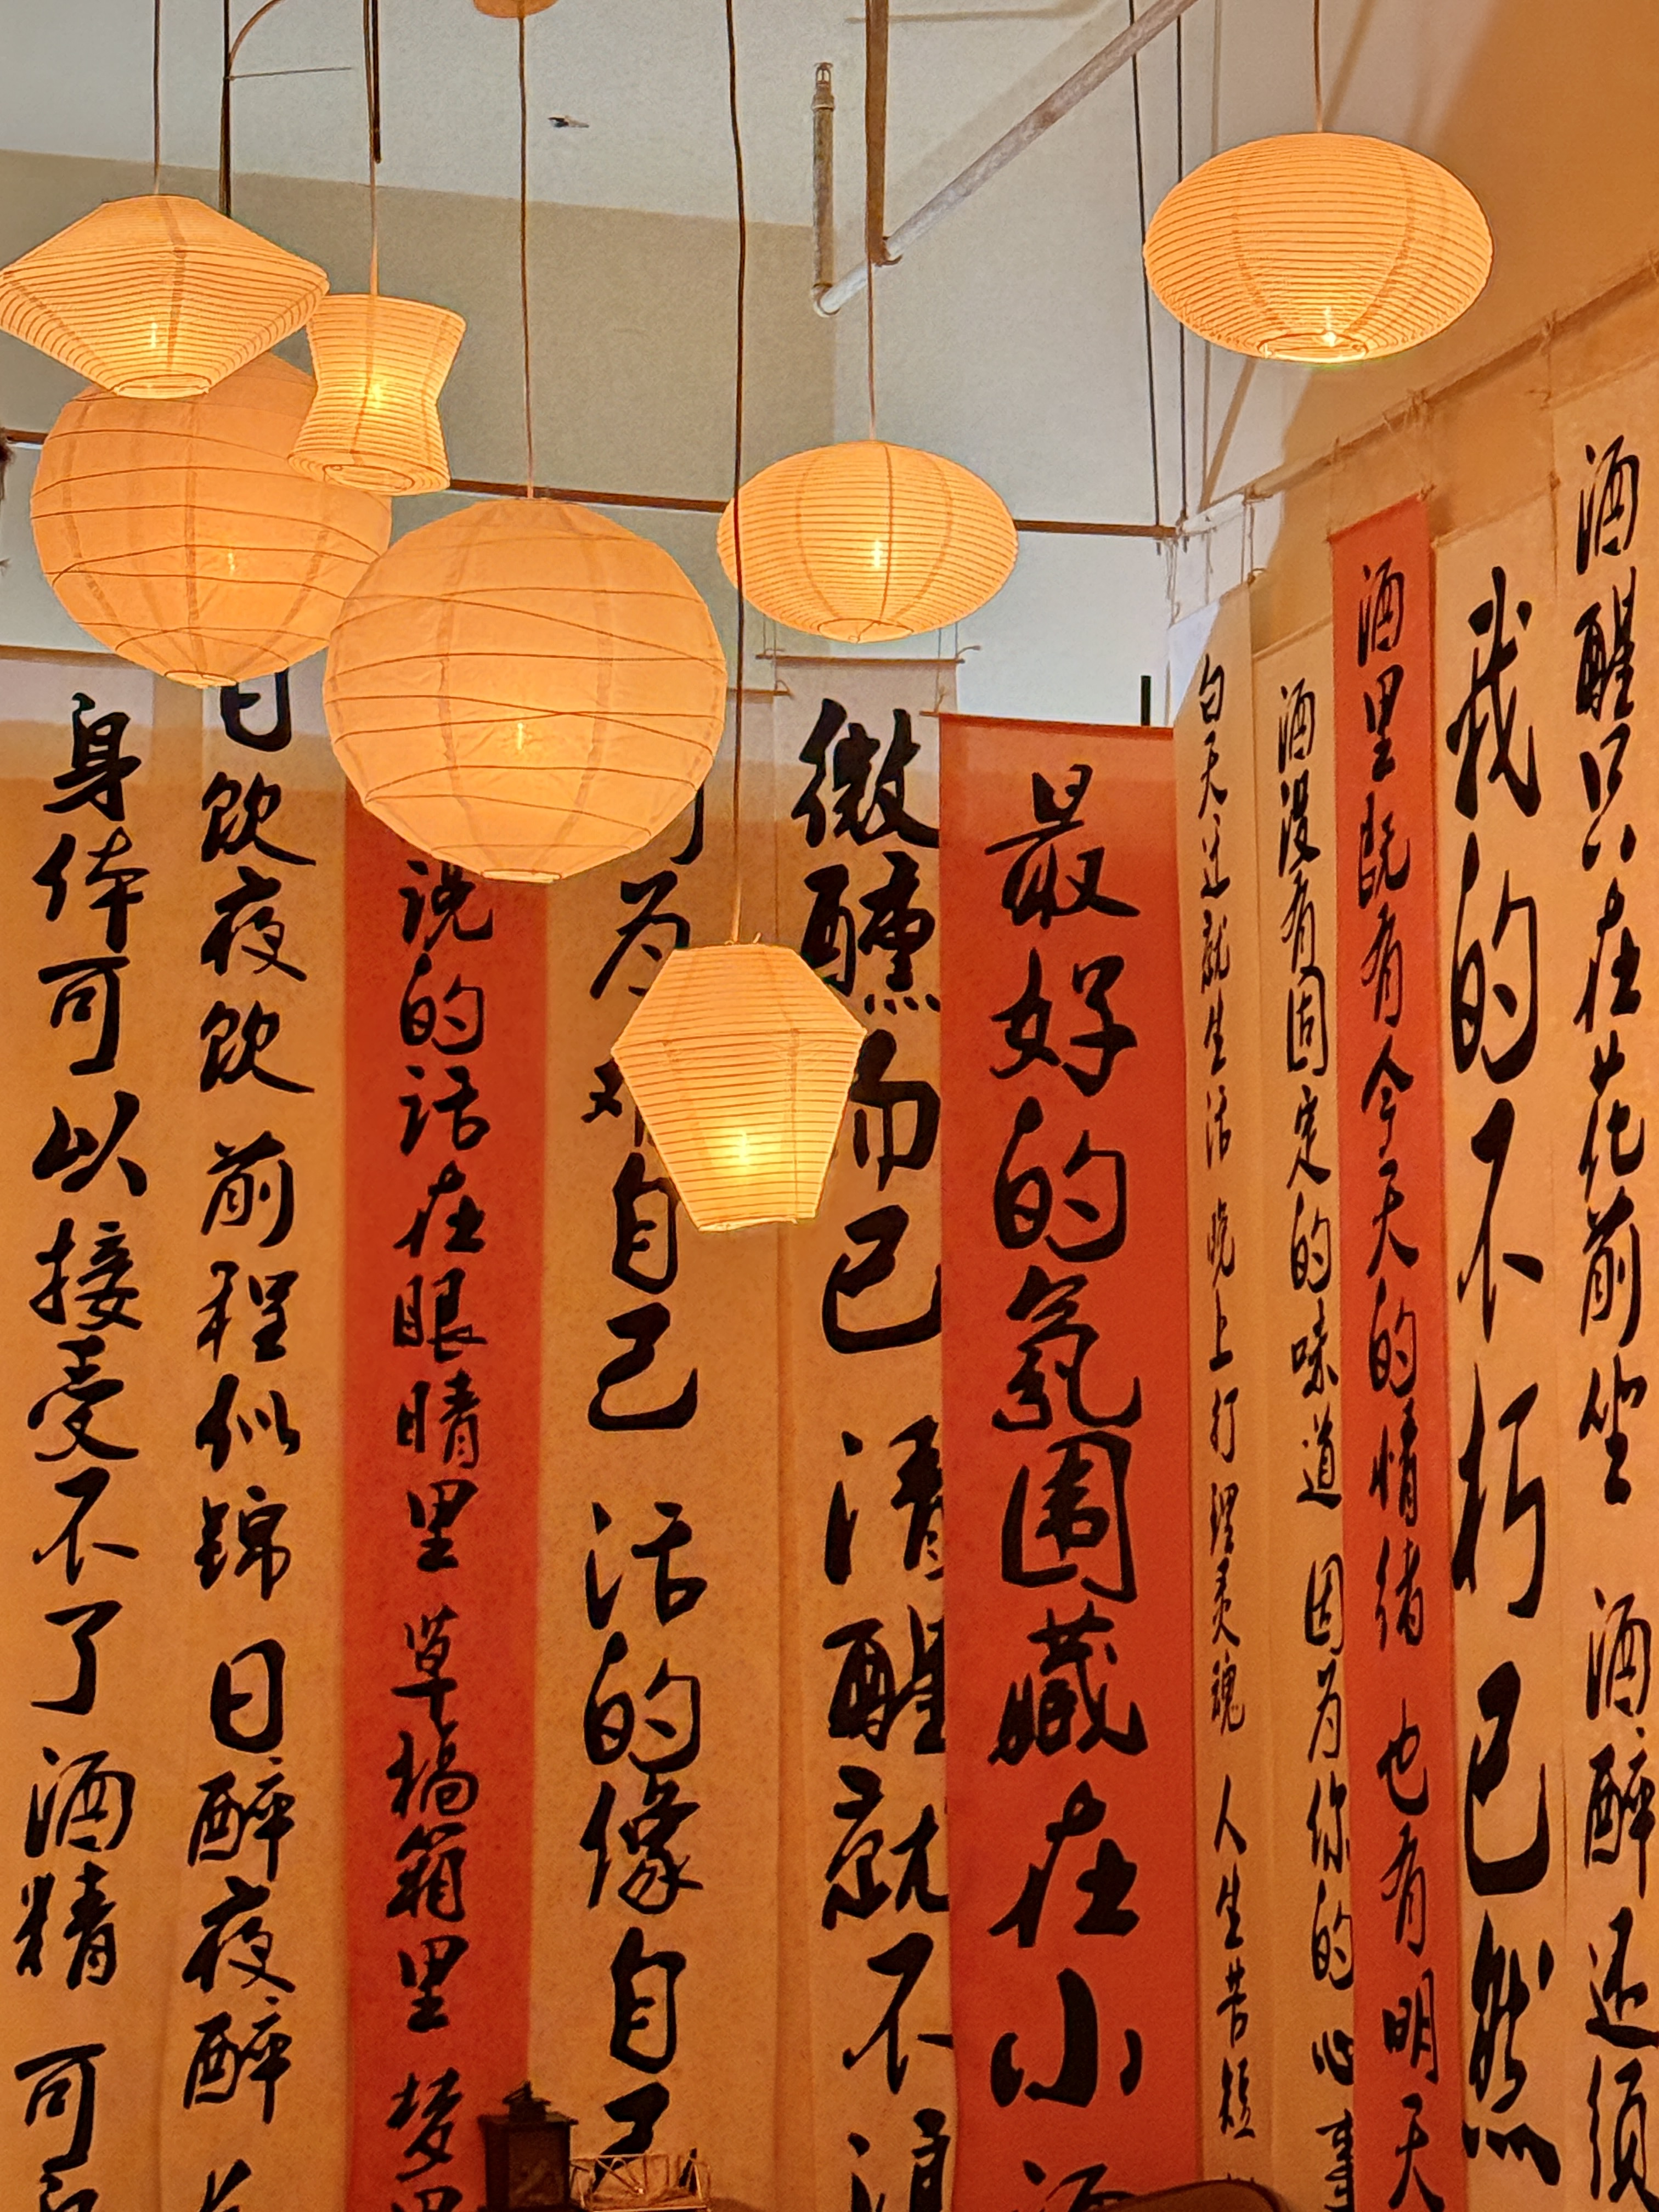 身体可以接受不了酒精 可
日饮夜饮 前程似锦 日醉夜醉
说的话在眼睛里 草稿箱里 梦里
为难自己 活的像自己
微醺而已 清醒就不
最好的氛围藏在小酒
白天迁就生活 晚上打理灵魂 人生苦短
酒没有固定的味道 因为你的心事
酒里既有今天的情绪 也有明天
我的不朽已然
酒醒只在花前坐 酒醉还须